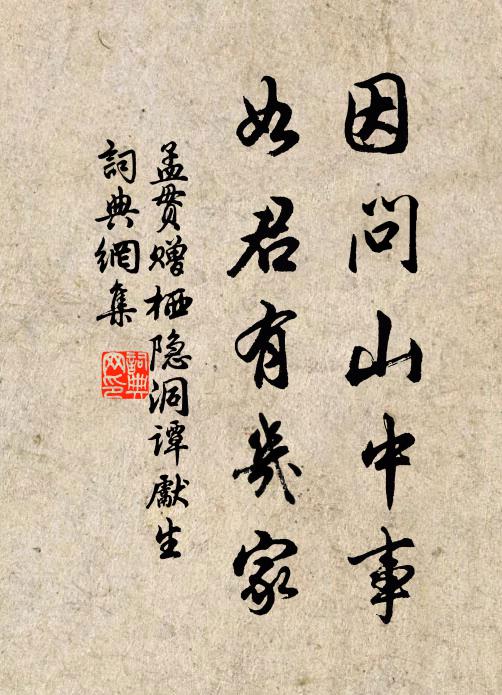 因问山中事
如君有几家
孟贯赠栖隐洞谭獻生
詞典網集
詞典
网印